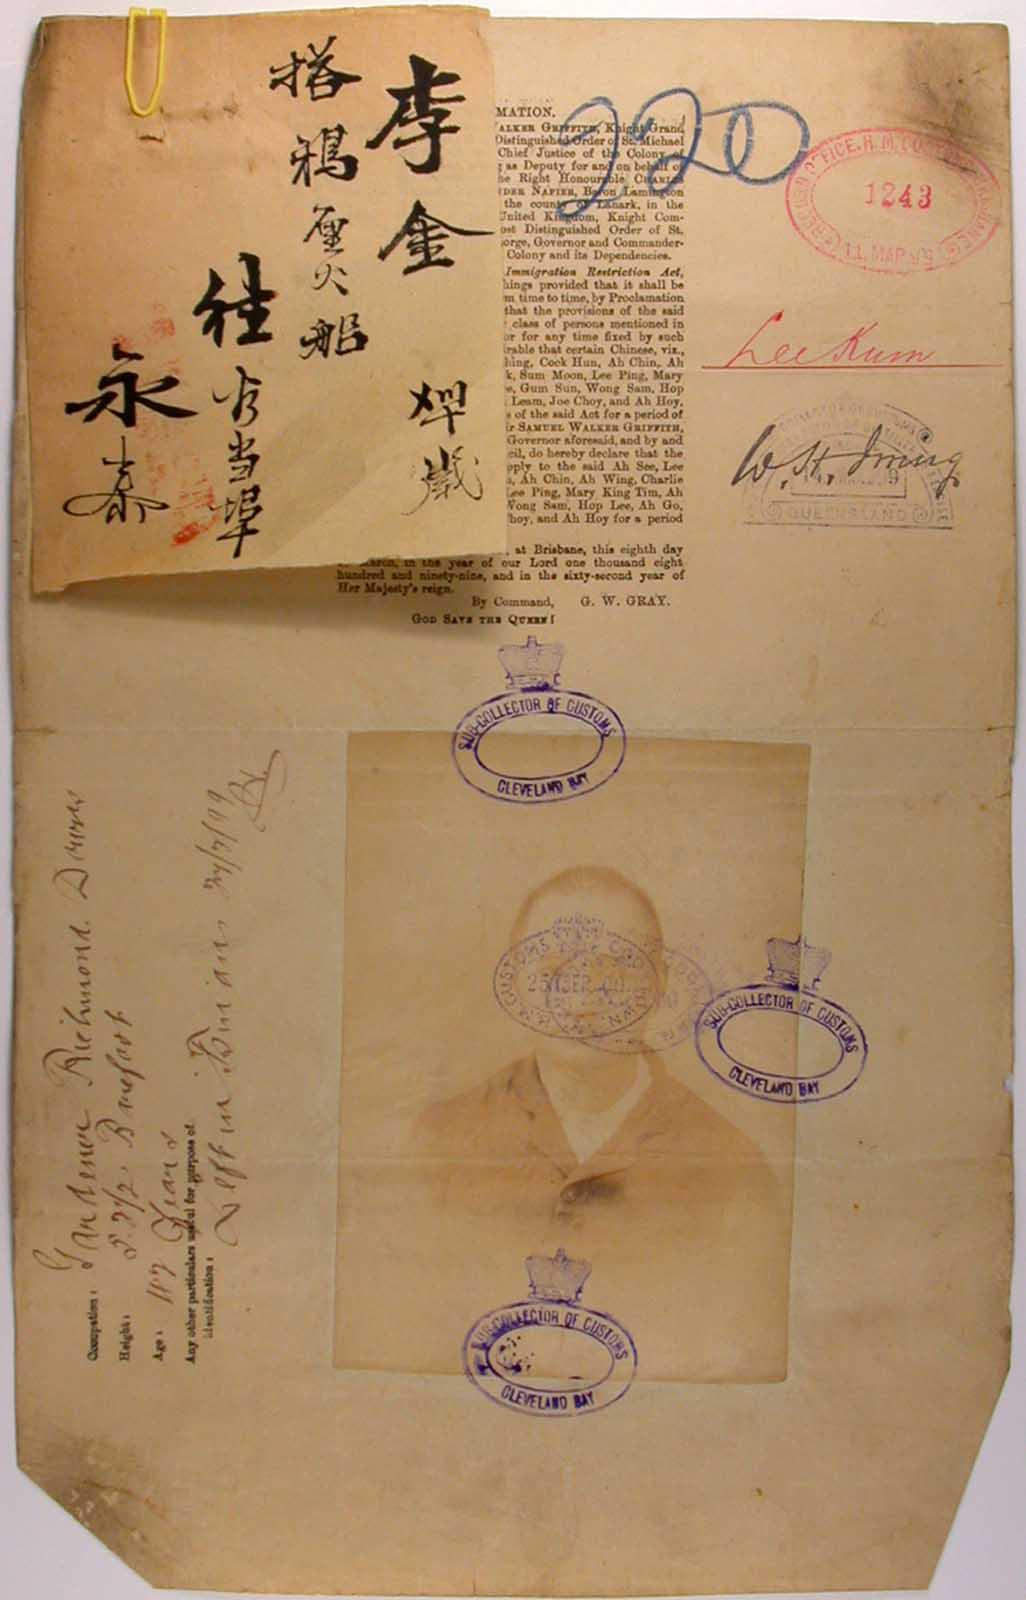 李金
搭鴉
火船
往
当埠
永泰
220
MATION.
ALKER GRIFFITH, Knight Grand
Distinguished Order of St. Michael
Chief Justice of the Colony of
as Deputy for and on behalf of
the Right Honourable CHARLES
NDER NAPIER, Baron Lamington
the county of Lanark, in the
United Kingdom, Knight Com-
ost Distinguished Order of St.
orge, Governor and Commander-
Colony and its Dependencies.
Immigration Restriction Act,
hings provided that it shall be
m time to time, by Proclamation
that the provisions of the said
class of persons mentioned in
or for any time fixed by such
irable that certain Chinese, viz.,
hing, Cock Hun, Ah Chin, Ah
k, Sum Moon, Lee Ping, Mary
Gum Sun, Wong Sam, Hop
Leam, Joe Choy, and Ah Hoy,
s of the said Act for a period of
ir SAMUEL WALKER GRIFFITH,
Governor aforesaid, and by and
cil, do hereby declare that the
pply to the said Ah See, Lee
Ah Chin, Ah Wing, Charlie
Lee Ping, Mary King Tim, Ah
Wong Sam, Hop Lee, Ah Go,
hoy, and Ah Hoy for a period
at Brisbane, this eighth day
of March, in the year of our Lord one thousand eight
hundred and ninety-nine, and in the sixty-second year of
Her Majesty's reign.
By Command, G. W. GRAY.
GOD SAVE THE QUEEN!
1243
11. MAR. 99
Lee Kum
W. St. Irving
COLLECTOR OF CUSTOMS
QUEENSLAND
SUB-COLLECTOR OF CUSTOMS
CLEVELAND BAY
H.M. CUSTOMS
SUB-COLLECTOR OF CUSTOMS
CLEVELAND BAY
SUB-COLLECTOR OF CUSTOMS
CLEVELAND BAY
Occupation: Gardener Richmond Downs
Height:
Age: Years
Any other particulars useful for purpose of
identification: